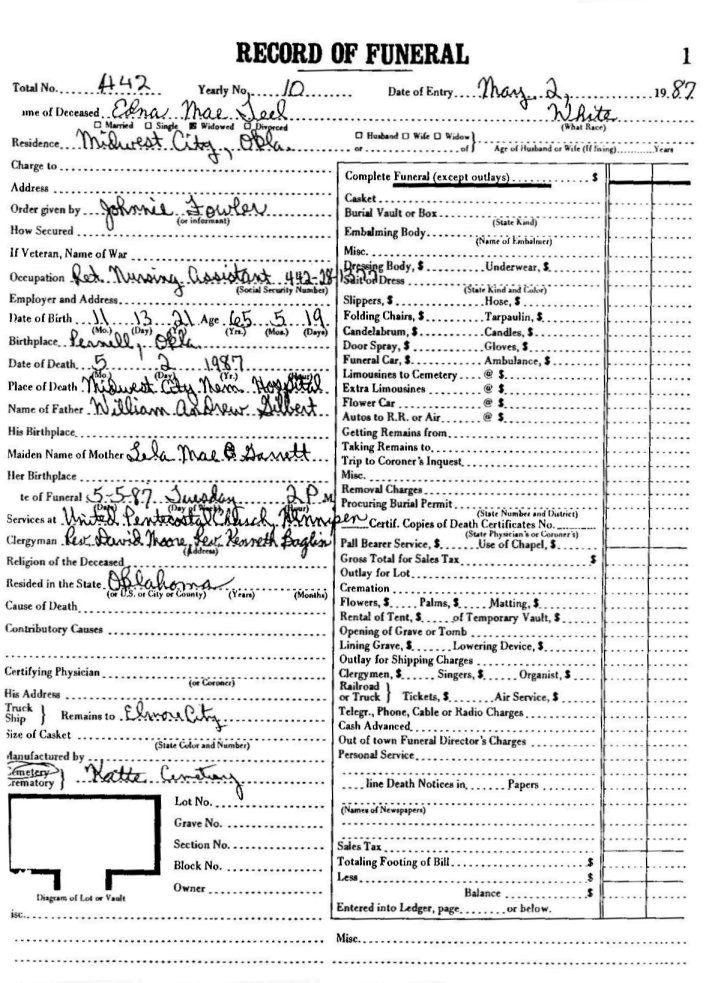 RECORD OF FUNERAL 1
Total No. 442 Yearly No. 10 Date of Entry May 2, 1987
me of Deceased Edna Mae Teel White
☐ Married ☐ Single ☒ Widowed ☐ Divorced (What Race)
Residence Midwest City, Okla. ☐ Husband ☐ Wife ☐ Widow } or of } Age of Husband or Wife (If living) Years
Charge to
Address
Order given by Johnnie Fowler
(or informant)
How Secured
If Veteran, Name of War
Occupation Ret. Nursing Assistant 442-28-
(Social Security Number)
Employer and Address
Date of Birth 11 13 21 Age 65 5 19
(Mo.) (Day) (Yr.) (Yrs.) (Mos.) (Days)
Birthplace Pernell, Okla
Date of Death 5 2 1987
(Mo.) (Day) (Yr.) (Hour)
Place of Death Midwest City Mem Hospital
Name of Father William Andrew Gilbert
His Birthplace
Maiden Name of Mother Lela Mae Garrett
Her Birthplace
te of Funeral 5-5-87 Tuesday 2 P M
(Date) (Day of Week) (Hour)
Services at United Pentecostal Church,
Clergyman Rev. David Moore, Rev. Kenneth Baglin
(Address)
Religion of the Deceased
Resided in the State Oklahoma
(or U.S. or City or County) (Years) (Months)
Cause of Death
Contributory Causes
Certifying Physician
(or Coroner)
His Address
Truck Ship } Remains to Elmore City
Size of Casket
(State Color and Number)
Manufactured by
Cemetery
rematory } Katie Cemetery
Lot No.
Grave No.
Section No.
Block No.
Owner
Diagram of Lot or Vault
isc.
Complete Funeral (except outlays) $
Casket
Burial Vault or Box
(State Kind)
Embalming Body
(Name of Embalmer)
Misc.
Dressing Body, $ Underwear, $
Suit or Dress
(State Kind and Color)
Slippers, $ Hose, $
Folding Chairs, $ Tarpaulin, $
Candelabrum, $ Candles, $
Door Spray, $ Gloves, $
Funeral Car, $ Ambulance, $
Limousines to Cemetery @ $
Extra Limousines @ $
Flower Car @ $
Autos to R.R. or Air @ $
Getting Remains from
Taking Remains to
Trip to Coroner's Inquest
Misc.
Removal Charges
Procuring Burial Permit
(State Number and District)
Certif. Copies of Death Certificates No.
(State Physician's or Coroner's)
Pall Bearer Service, $ Use of Chapel, $
Gross Total for Sales Tax $
Outlay for Lot
Cremation
Flowers, $ Palms, $ Matting, $
Rental of Tent, $ of Temporary Vault, $
Opening of Grave or Tomb
Lining Grave, $ Lowering Device, $
Outlay for Shipping Charges
Clergymen, $ Singers, $ Organist, $
Railroad or Truck } Tickets, $ Air Service, $
Telegr., Phone, Cable or Radio Charges
Cash Advanced
Out of town Funeral Director's Charges
Personal Service
line Death Notices in Papers
(Names of Newspapers)
Sales Tax
Totaling Footing of Bill $
Less $
Balance $
Entered into Ledger, page or below.
Misc.